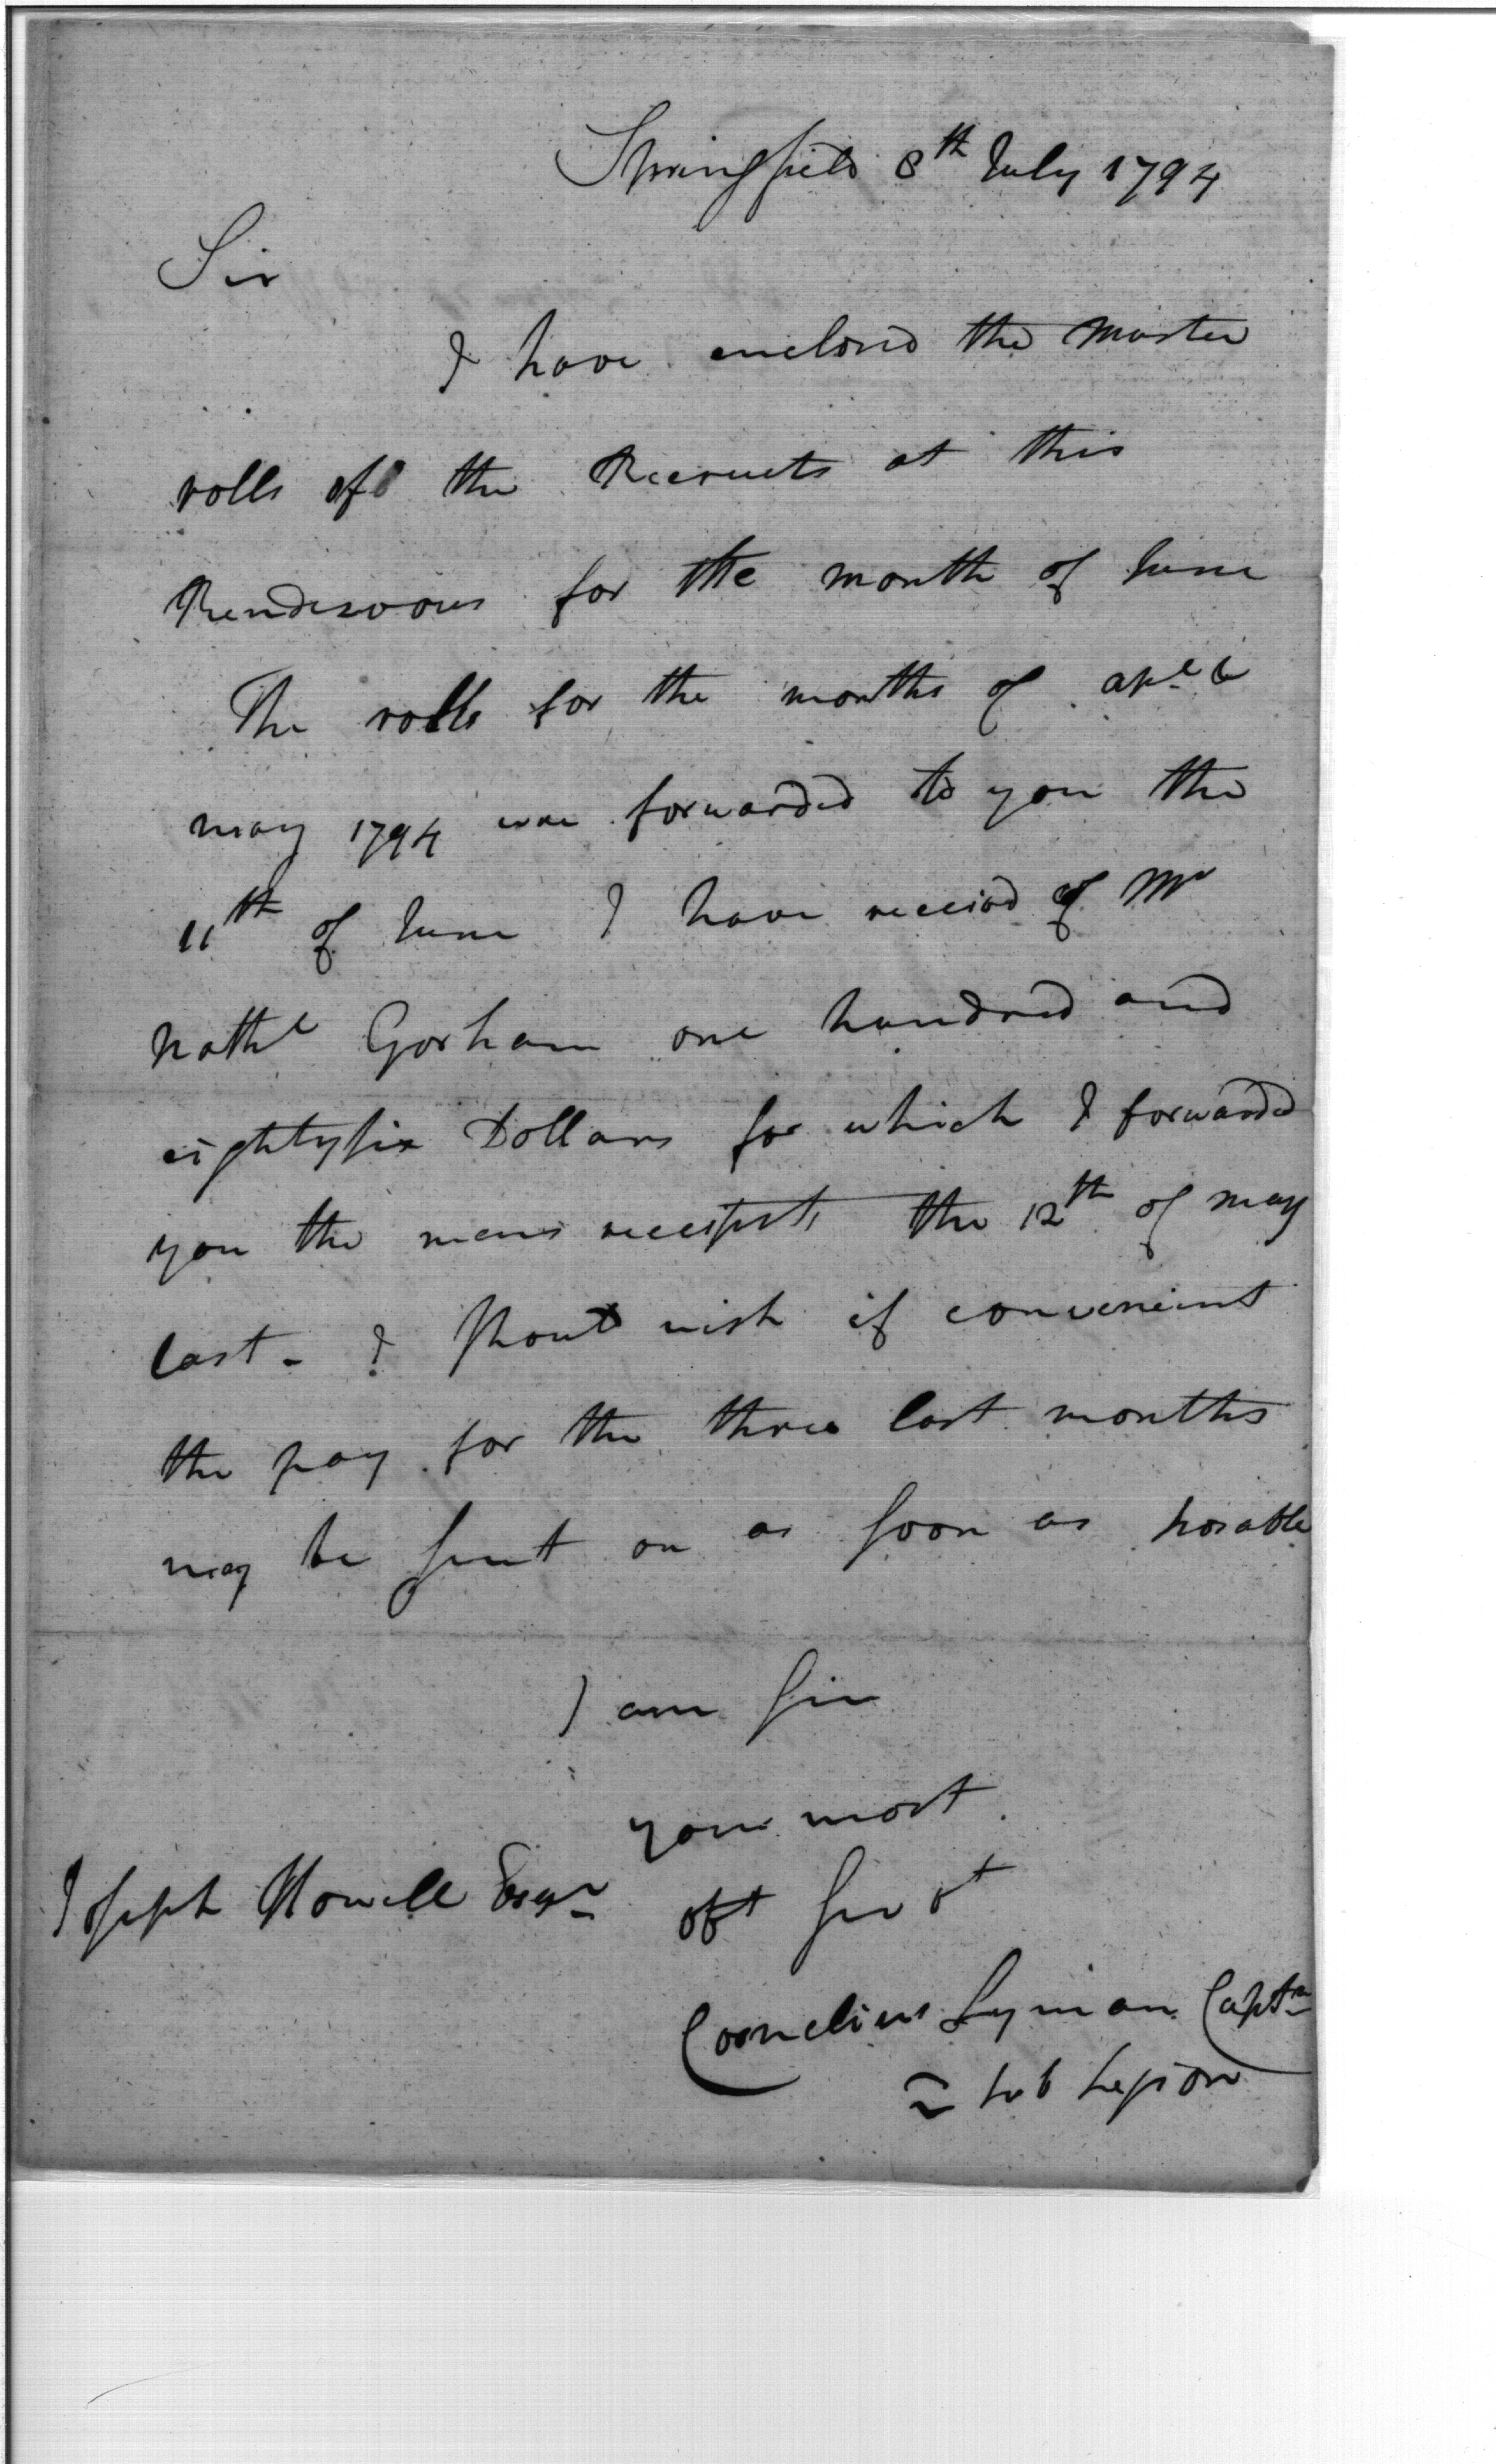 Springfield 8th July 1794
Sir
I have enclosed the Muster
rolls of the Recruits at this
Rendesvous for the month of June
The rolls for the months of apl &
may 1794 were forwarded to you the
11th of June I have receivd of Mr
Nathl Gorham one hundred and
eightysix Dollars for which I forwarded
you the mens receipts the 12th of may
last - I shoud wish if convenient
the pay for the three last months
may be sent on as soon as posable
I am Sir
your most
Joseph Howell Esqr obt Servt
Cornelius Lyman Captn
2 sub Legion